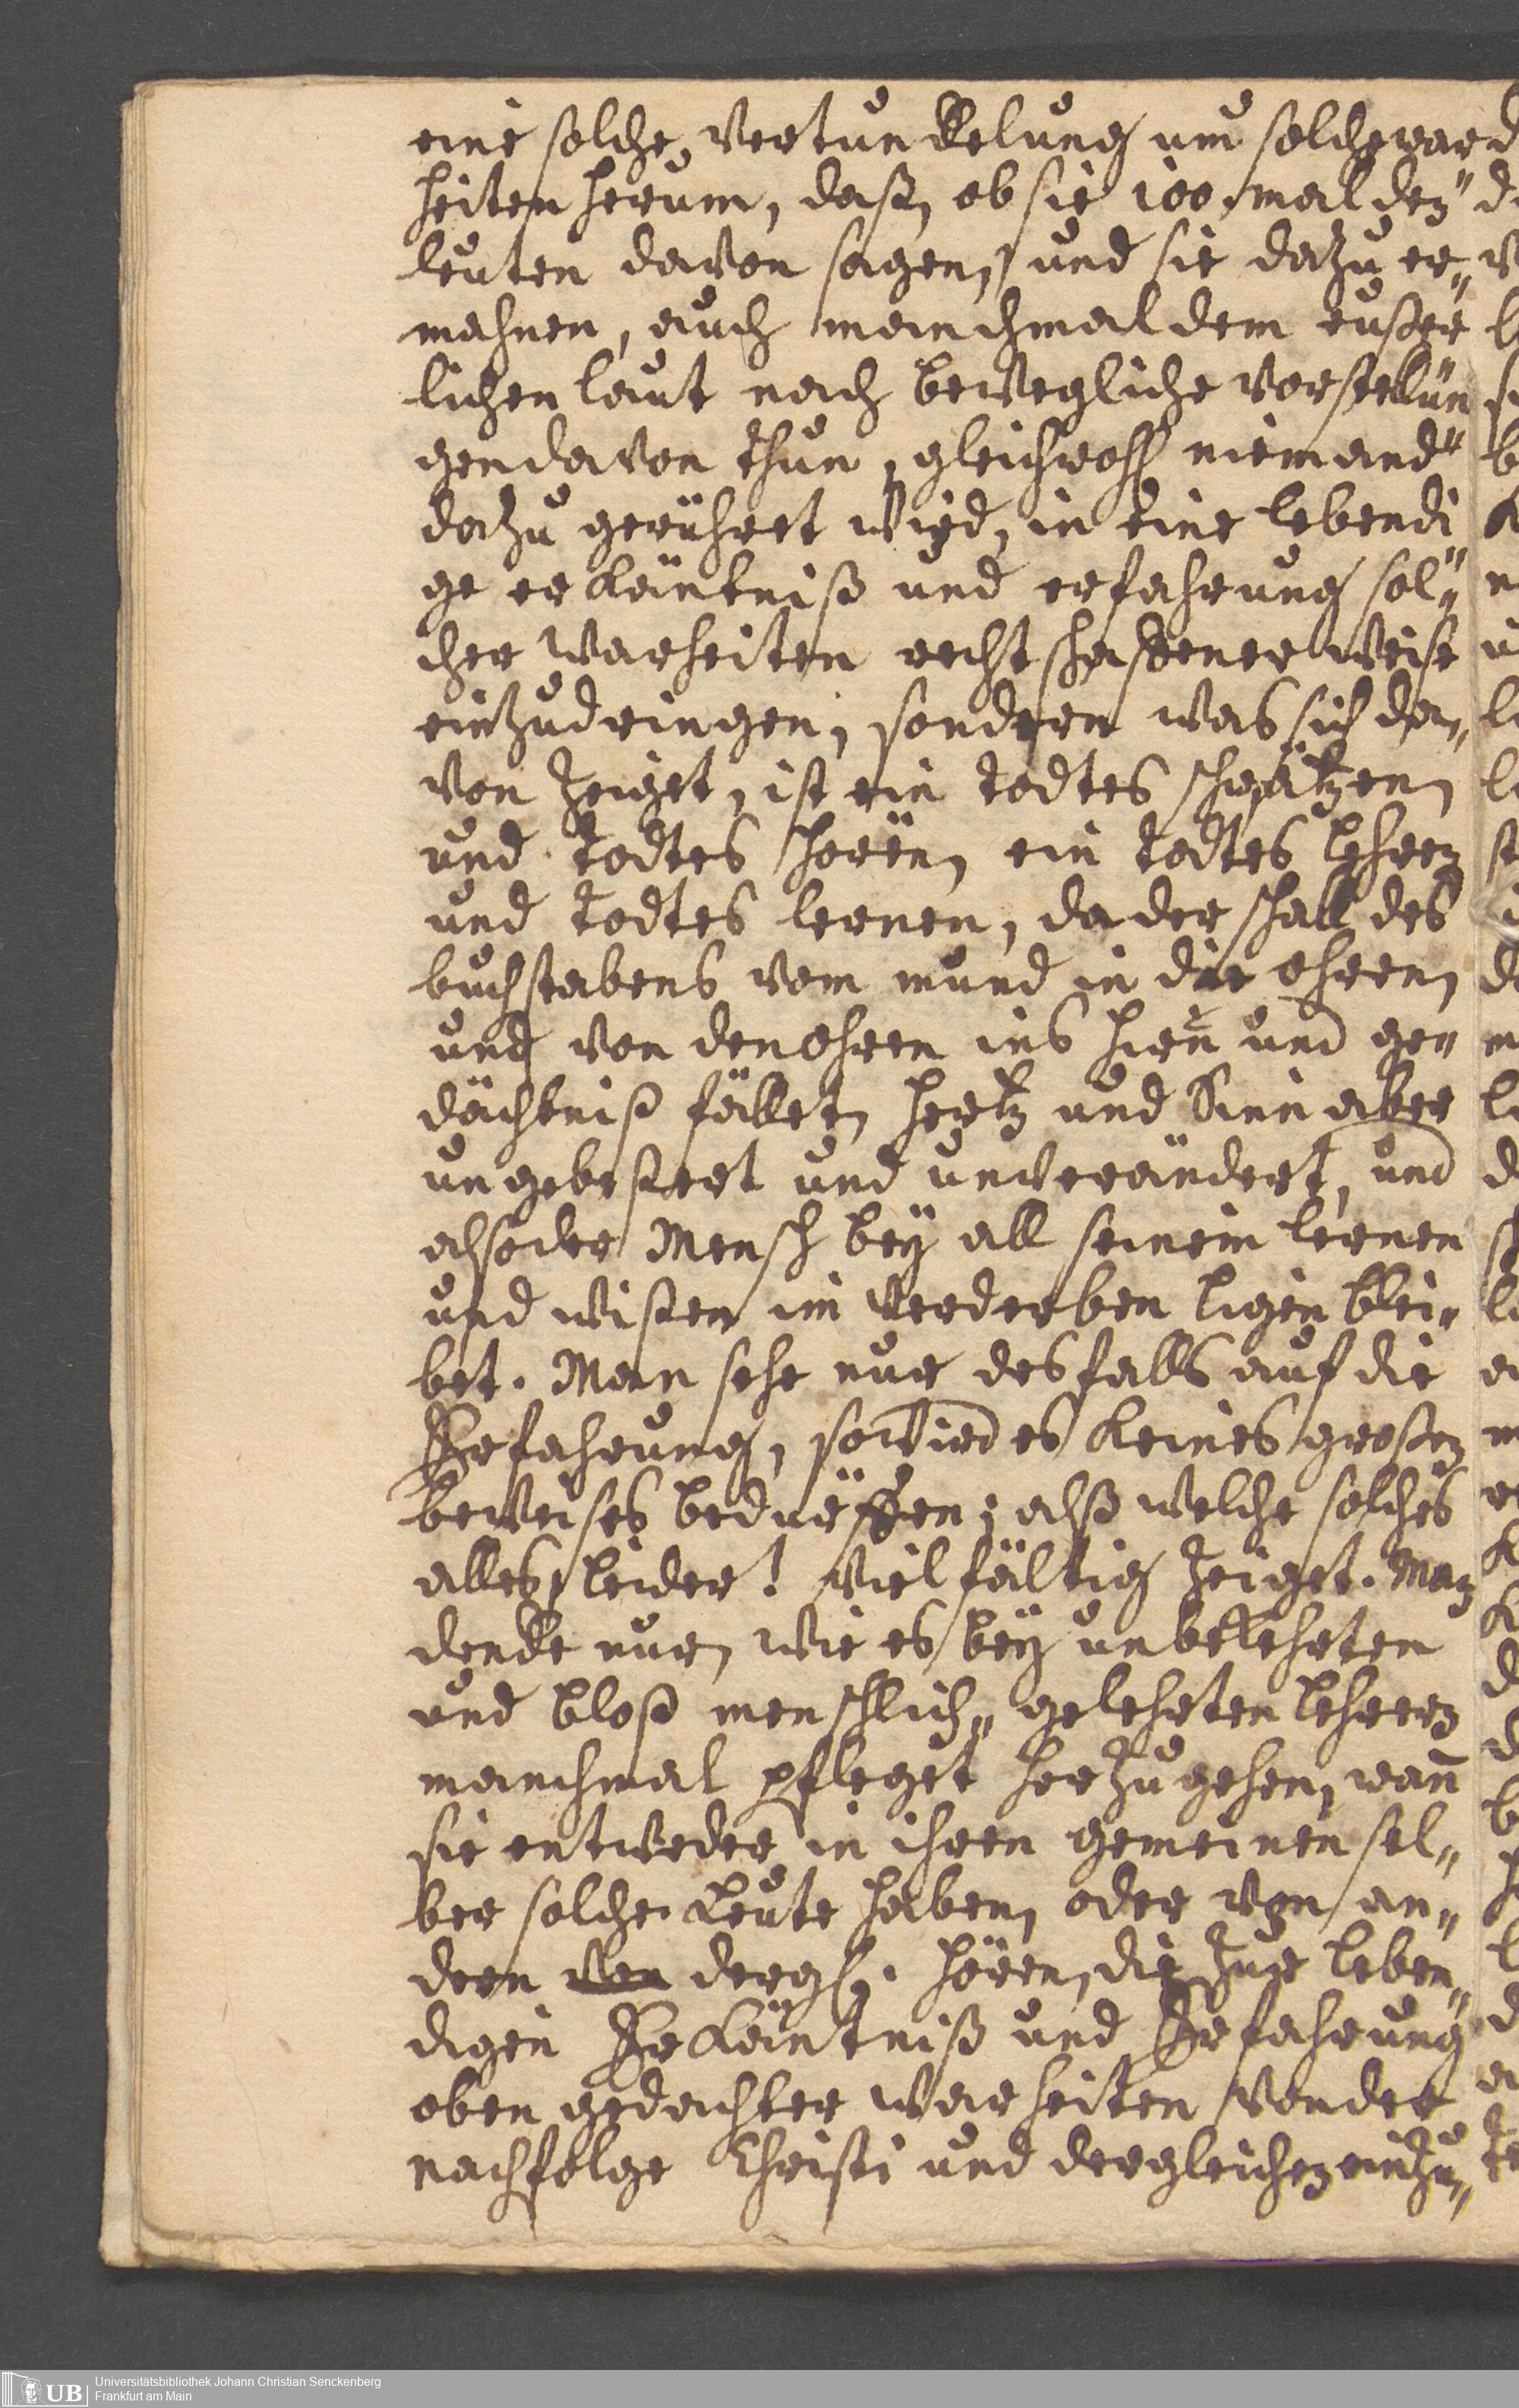 eine solche vertunckelung um solche war
heiten herum, daß, ob sie 100. mal den
leuten davon sagen, und sie dazu er-
mahnen, auch manchmal dem eußer
lichen laut nach bewegliche vorstellun
gen davon thun, gleichwohl niemand
dazu gerühret wird, in eine lebendi
ge erkäntniß und erfahrung sol-
cher warheiten rechtschaffener weise
einzudringen, sondern was sich da-
von zeiget, ist ein todtes schwätzen
und todtes hören, ein todtes lehren
und todtes lernen, da der schall des
buchstabens vom mund in die ohren,
und von den ohren ins hirn und ge-
dächtniß fället, hertz und Sinn aber
ungebessert und unverändert, und
also der Mensch bey all seinem lernen
und wissen im verderben ligen blei-
bet. Man sehe nur desfalls auf die
Erfahrung, so wird es keines grossen
beweises bedürffen; alß welche solches
alles, leider! vielfältig zeiget. Man
dencke nur, wie es bey unbekehrten
und bloß menschlich-gelehrten lehrern
manchmal pfleget herzugehen, wann
sie entweder in ihren gemeinen sel-
ber solche Leute haben, oder von an-
dern dergl. hören, die zur leben-
digen Erkäntniß und Erfahrung
oben gedachter warheiten von der
nachfolge Christi und dergleichen einzu-
UB Universitätsbibliothek Johann Christian Senckenberg
Frankfurt am Main